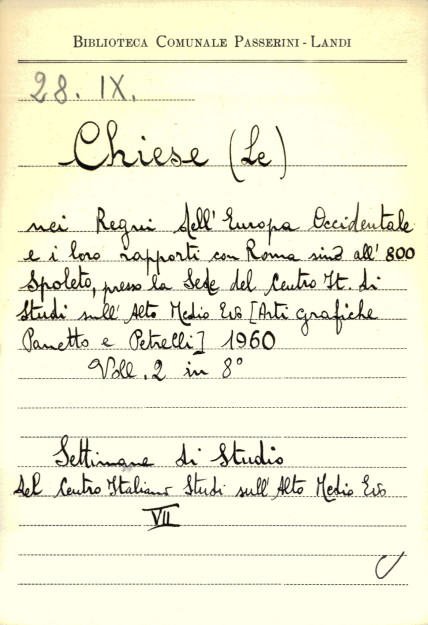 BIBLIOTECA COMUNALE PASSERINI - LANDI
28. IX.
Chiese (Le)
nei Regni dell'Europa Occidentale
e i loro rapporti con Roma sino all'800
Spoleto, presso la Sede del Centro It. di
Studi sull'Alto Medio Evo [Arti grafiche
Panetto e Petrelli] 1960
Voll. 2 in 8°
Settimane di Studio
del Centro Italiano Studi sull'Alto Medio Evo
VII